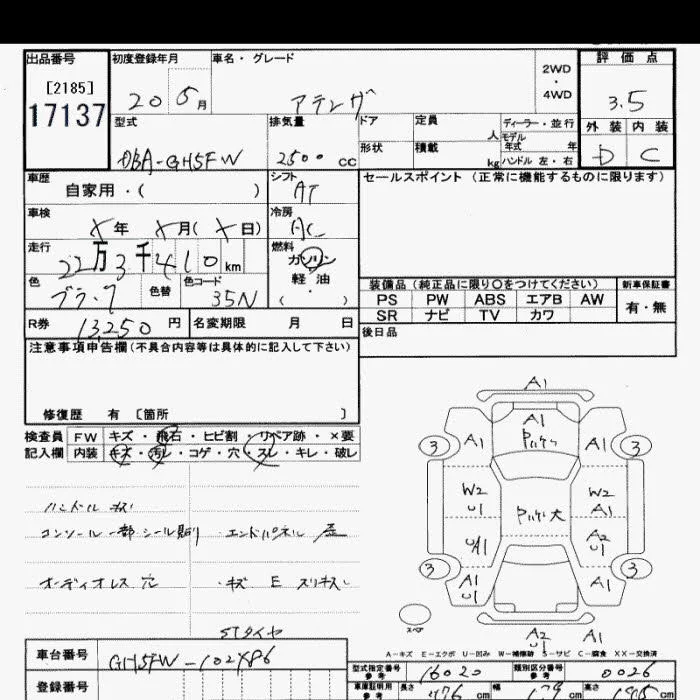 出品番号 初度登録年月 車名・グレード 2WD・4WD 評価点
[2185]
17137
20 5月 アテンザ 3.5
型式 排気量 ドア 定員 人 ディーラー・並行 外装 内装
モデル年式 年
DBA-GH5FW 2500cc 形状 積載 kg ハンドル 左・右 D C
車歴 シフト セールスポイント(正常に機能するものに限ります)
自家用・( ) AT
車検 冷房
X年 X月(X日) AC
走行 燃料
22万3千410km ガソリン
軽油
( )
色 色替 色コード 35N
装備品(純正品に限り○をつけてください) 新車保証書
PS PW ABS エアB AW 有・無
SR ナビ TV カワ
R券 13,250円 名変期限 月 日 後日品
注意事項申告欄(不具合内容等は具体的に記入して下さい)
修復歴 有 [箇所 ]
検査員 FW キズ・飛石・ヒビ割・リペア跡・×要
記入欄 内装 キズ・汚レ・コゲ・穴・スレ・キレ・破レ
ハンドル
コンソール一部シール貼り エンドパネル
オーディオレス 穴 ・キズ E スリキズ
STタイヤ
A1
A1
3 A1 A1 3
W2 W2
U1 A1
大
A2
U1
3 A1 A1 3
U1
スペア
A2 A1
U1
A-キズ E-エクボ U-凹み W-補修跡 S-サビ C-腐食 XX-交換済
車台番号 GH5FW-102486
型式指定番号 参考 16020 類別区分番号 参考 0026
登録番号
車庫証明用 参考 長さ 476cm 幅 179cm 高さ cm